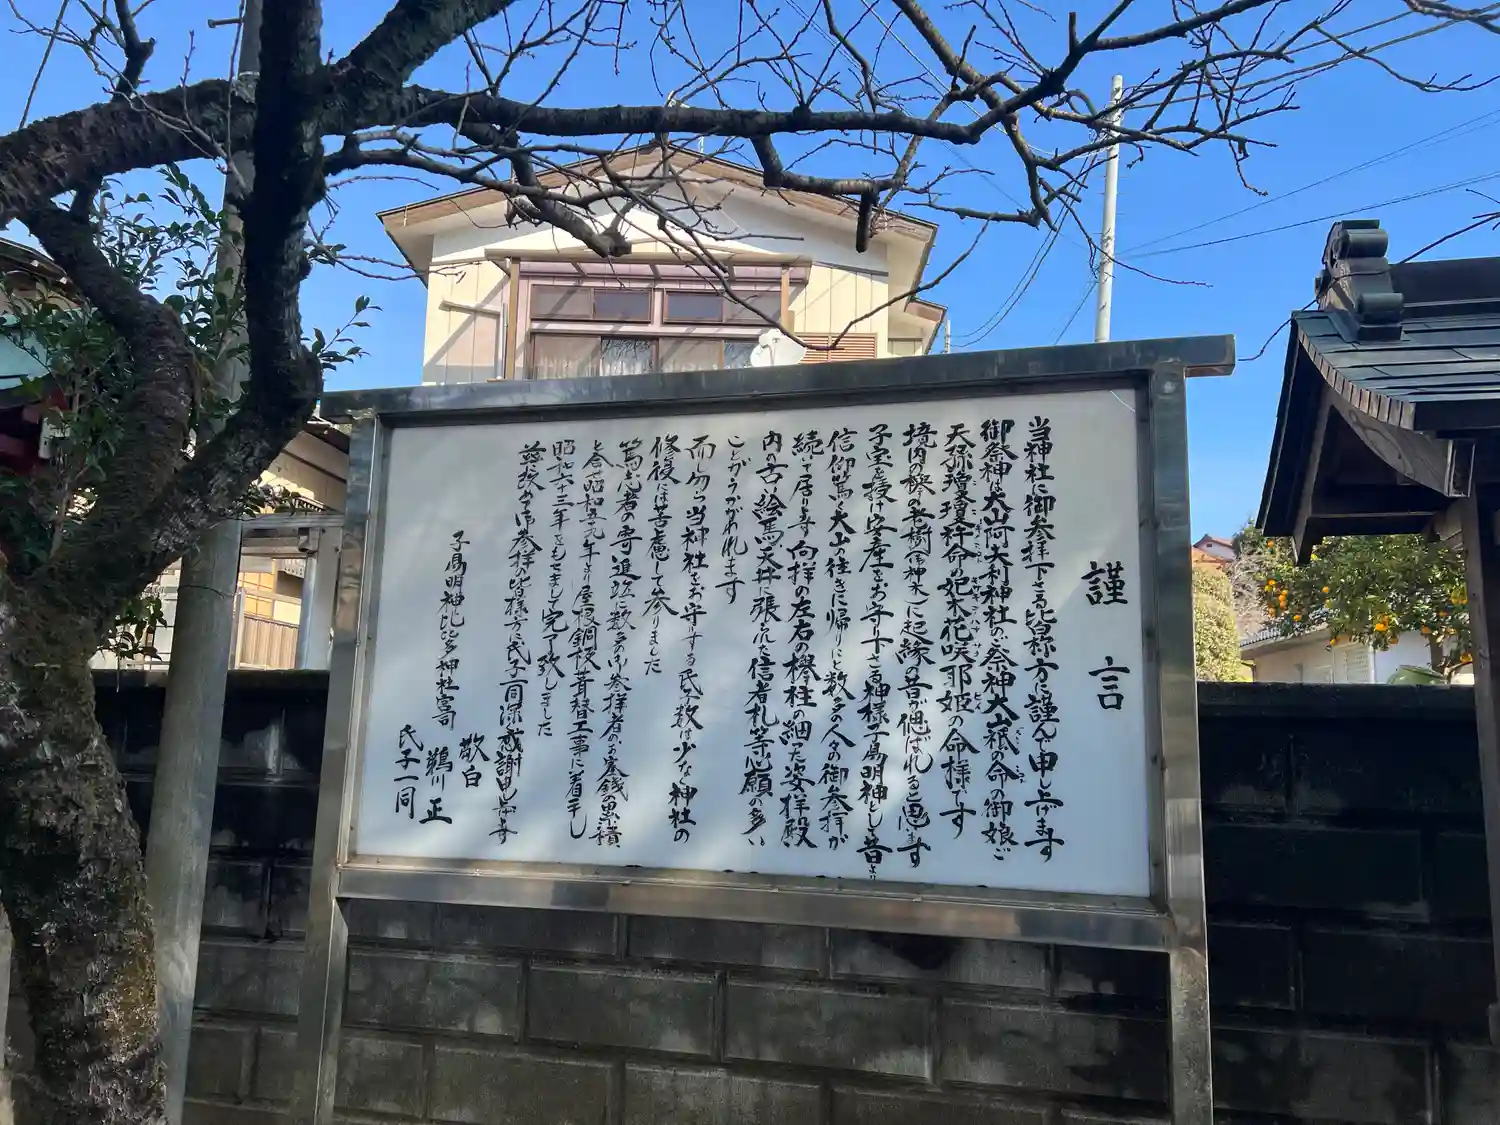 謹言
当神社に御参拝下さる皆様方に謹んで申上げます
御祭神は大山阿夫利神社の御祭神大山祇の命の御娘ご
天孫瓊瓊杵命の妃木花咲耶姫の命様です
境内の欅の老樹(御神木)に起縁昔が偲ばれると思います
子宝を授け安産をお守り下さる神様子易明神として昔より
信仰篤く大山の往きに帰りにと数多の人々の御参拝が
続いて居ります 向拝の左右の欅柱の細った姿拝殿
内 古い絵馬天井に張られた信者札等心願の多い
ことがうかがわれます
而し乍ら当神社をお守りする氏子数は少なく神社の
修復には苦慮して参りました
篤志者の寄進並に数多の御参拝者のお賽銭累積
し今昭和五十九年より屋根銅板葺替工事に着手し
昭和六十三年でもせまして完了致しました
茲に改めて御参拝の皆様方に氏子一同深く感謝申上げます
子易明神比比多神社宮司 鵜川 正
氏子一同
敬白